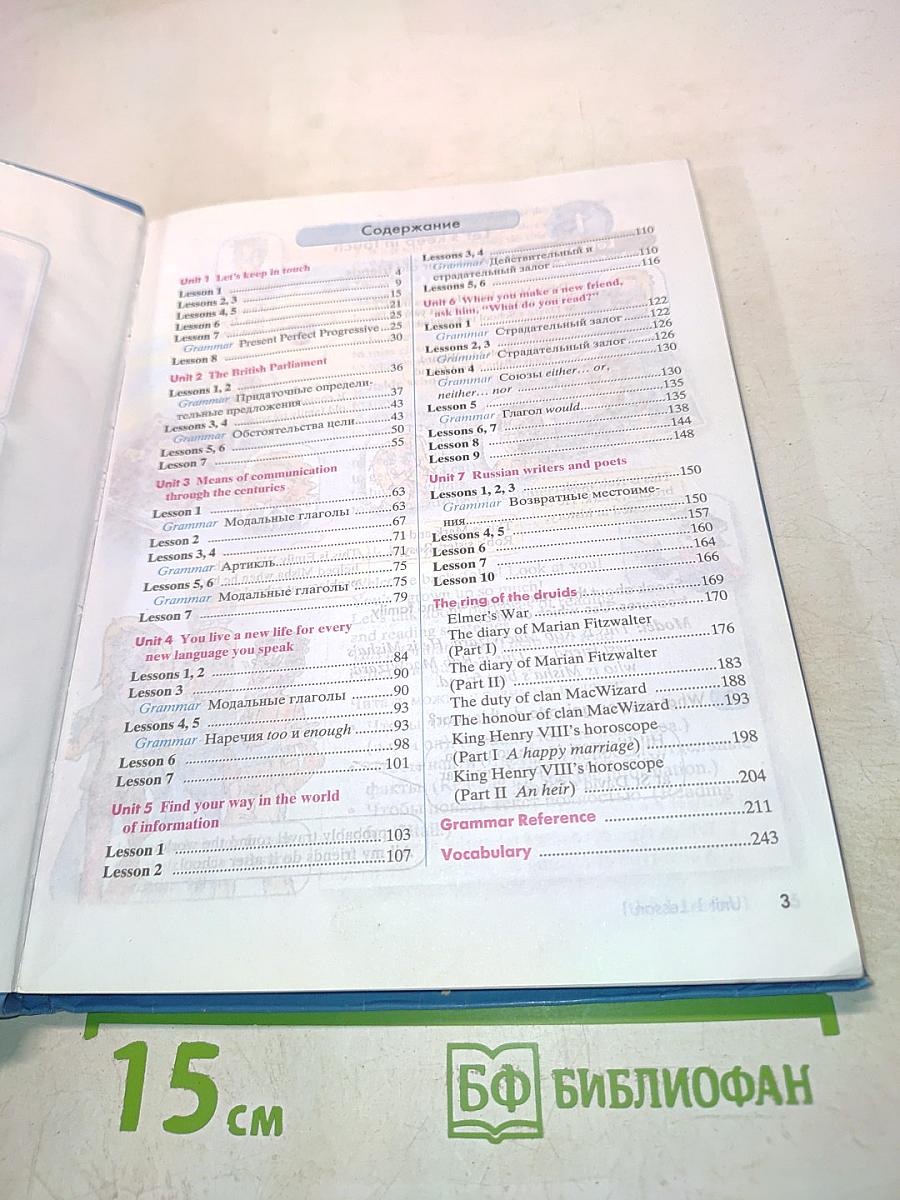 Содержание
Unit 1 Let's keep in touch
Lesson 1 ..... 4
Lessons 2, 3 ..... 9
Lessons 4, 5 ..... 15
Lesson 6 ..... 21
Lesson 7 ..... 25
Grammar Present Perfect Progressive ... 25
Lesson 8 ..... 30
Unit 2 The British Parliament
Lessons 1, 2 ..... 36
Grammar Придаточные определи-
тельные предложения ..... 37
Lessons 3, 4 ..... 43
Grammar Обстоятельства цели ..... 43
Lessons 5, 6 ..... 50
Lesson 7 ..... 55
Unit 3 Means of communication
through the centuries
Lesson 1 ..... 63
Grammar Модальные глаголы ..... 63
Lesson 2 ..... 67
Lessons 3, 4 ..... 71
Grammar Артикль ..... 71
Lessons 5, 6 ..... 75
Grammar Модальные глаголы ..... 75
Lesson 7 ..... 79
Unit 4 You live a new life for every
new language you speak
Lessons 1, 2 ..... 84
Lesson 3 ..... 90
Grammar Модальные глаголы ..... 90
Lessons 4, 5 ..... 93
Grammar Наречия too и enough ..... 93
Lesson 6 ..... 98
Lesson 7 ..... 101
Unit 5 Find your way in the world
of information
Lesson 1 ..... 103
Lesson 2 ..... 107
Lessons 3, 4 ..... 110
Grammar Действительный и
страдательный залог ..... 110
Lessons 5, 6 ..... 116
Unit 6 When you make a new friend,
ask him, "What do you read?"
Lesson 1 ..... 122
Grammar Страдательный залог ..... 122
Lessons 2, 3 ..... 126
Grammar Страдательный залог ..... 126
Lesson 4 ..... 130
Grammar Союзы either... or,
neither... nor ..... 130
Lesson 5 ..... 135
Grammar Глагол would ..... 135
Lessons 6, 7 ..... 138
Lesson 8 ..... 144
Lesson 9 ..... 148
Unit 7 Russian writers and poets
Lessons 1, 2, 3 ..... 150
Grammar Возвратные местоиме-
ния ..... 150
Lessons 4, 5 ..... 157
Lesson 6 ..... 160
Lesson 7 ..... 164
Lesson 10 ..... 166
The ring of the druids ..... 169
Elmer's War ..... 170
The diary of Marian Fitzwalter
(Part I) ..... 176
The diary of Marian Fitzwalter
(Part II) ..... 183
The duty of clan MacWizard ..... 188
The honour of clan MacWizard ..... 193
King Henry VIII's horoscope
(Part I A happy marriage) ..... 198
King Henry VIII's horoscope
(Part II An heir) ..... 204
Grammar Reference ..... 211
Vocabulary ..... 243
3
15 см
БФ БИБЛИОФАН